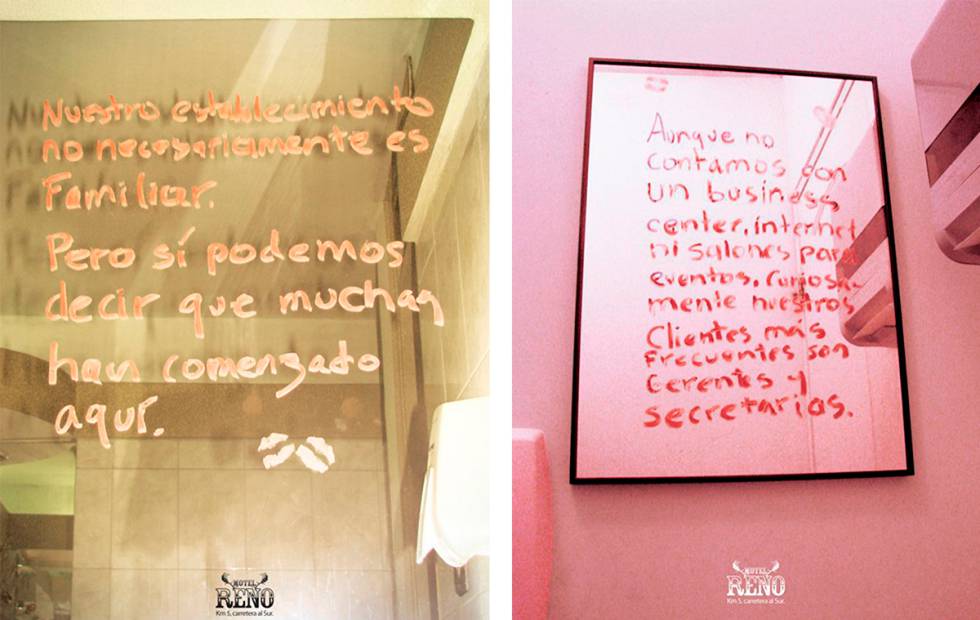 Nuestro establecimiento
no necesariamente es
Familiar.
Pero sí podemos
decir que muchas
han comenzado
aquí.
MOTEL
RENO
Km 5, carretera al Sur.
Aunque no
contamos con
un business
center, internet
ni salones para
eventos. Curiosa-
mente nuestros
Clientes más
Frecuentes son
Gerentes y
secretarias.
MOTEL
RENO
Km 5, carretera al Sur.